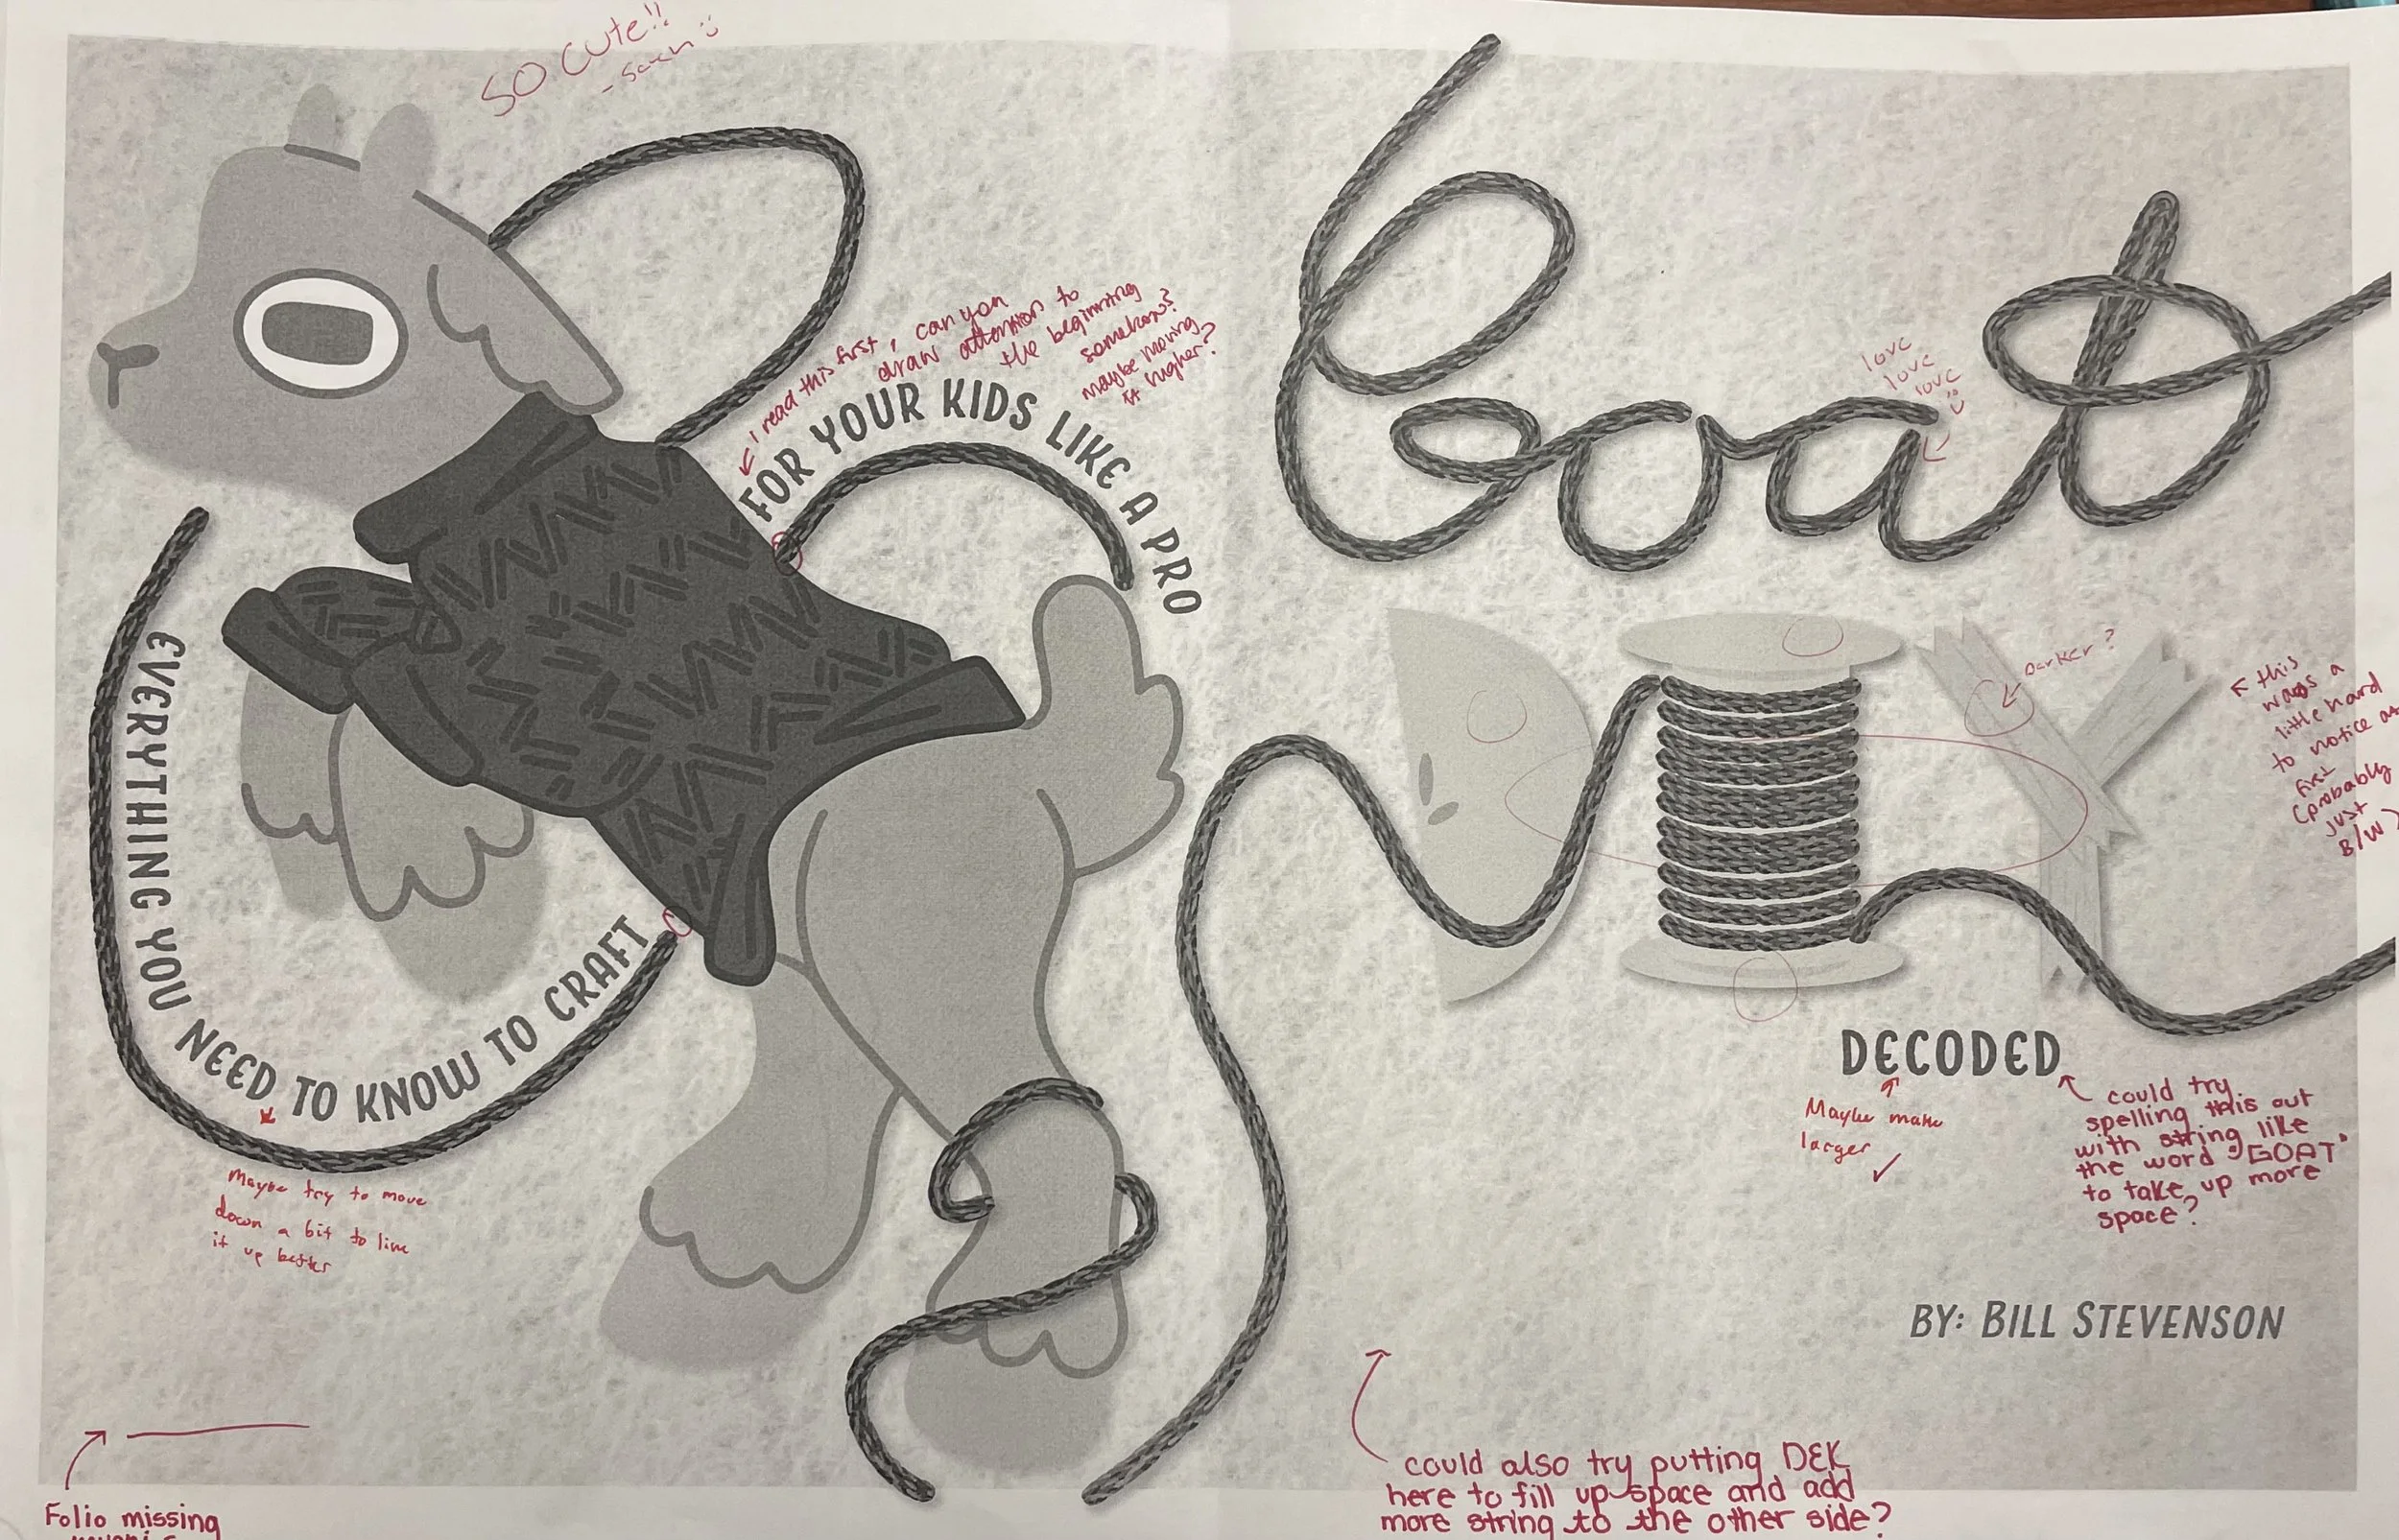 SO CUTE!!
- Sarah
I read this first, can you
draw attention to
the beginning
somehow?
maybe moving
it higher?
FOR YOUR KIDS LIKE A PRO
EVERYTHING YOU NEED TO KNOW TO CRAFT
Maybe try to move
down a bit to line
it up better
Folio missing
Goat
love
love
love
DIY
Darker?
this
was a
little hard
to notice at
first
(probably
just
B/W)
DECODED
Maybe make
larger
could try
spelling this out
with string like
the word "GOAT"
to take up more
space?
BY: BILL STEVENSON
could also try putting DEK
here to fill up space and add
more string to the other side?